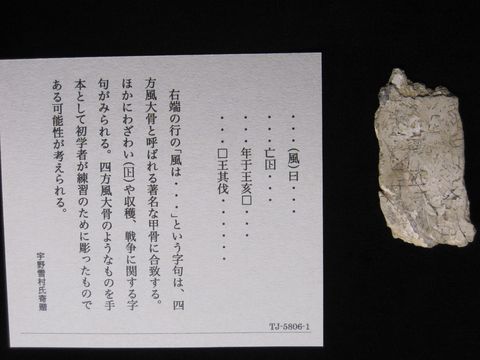 ・・・・(風)曰・・・
・・・・亡𡆥・・・
・・・・年于王亥□・・・
・・・・□王其伐・・・・・・
右端の行の「風は・・・」という字句は、四
方風大骨と呼ばれる著名な甲骨に合致する。
ほかにわざわい(𡆥)や収穫、戦争に関する字
句がみられる。四方風大骨のようなものを手
本として初学者が練習のために彫ったもので
ある可能性が考えられる。
宇野雪村氏寄贈
TJ-5806-1